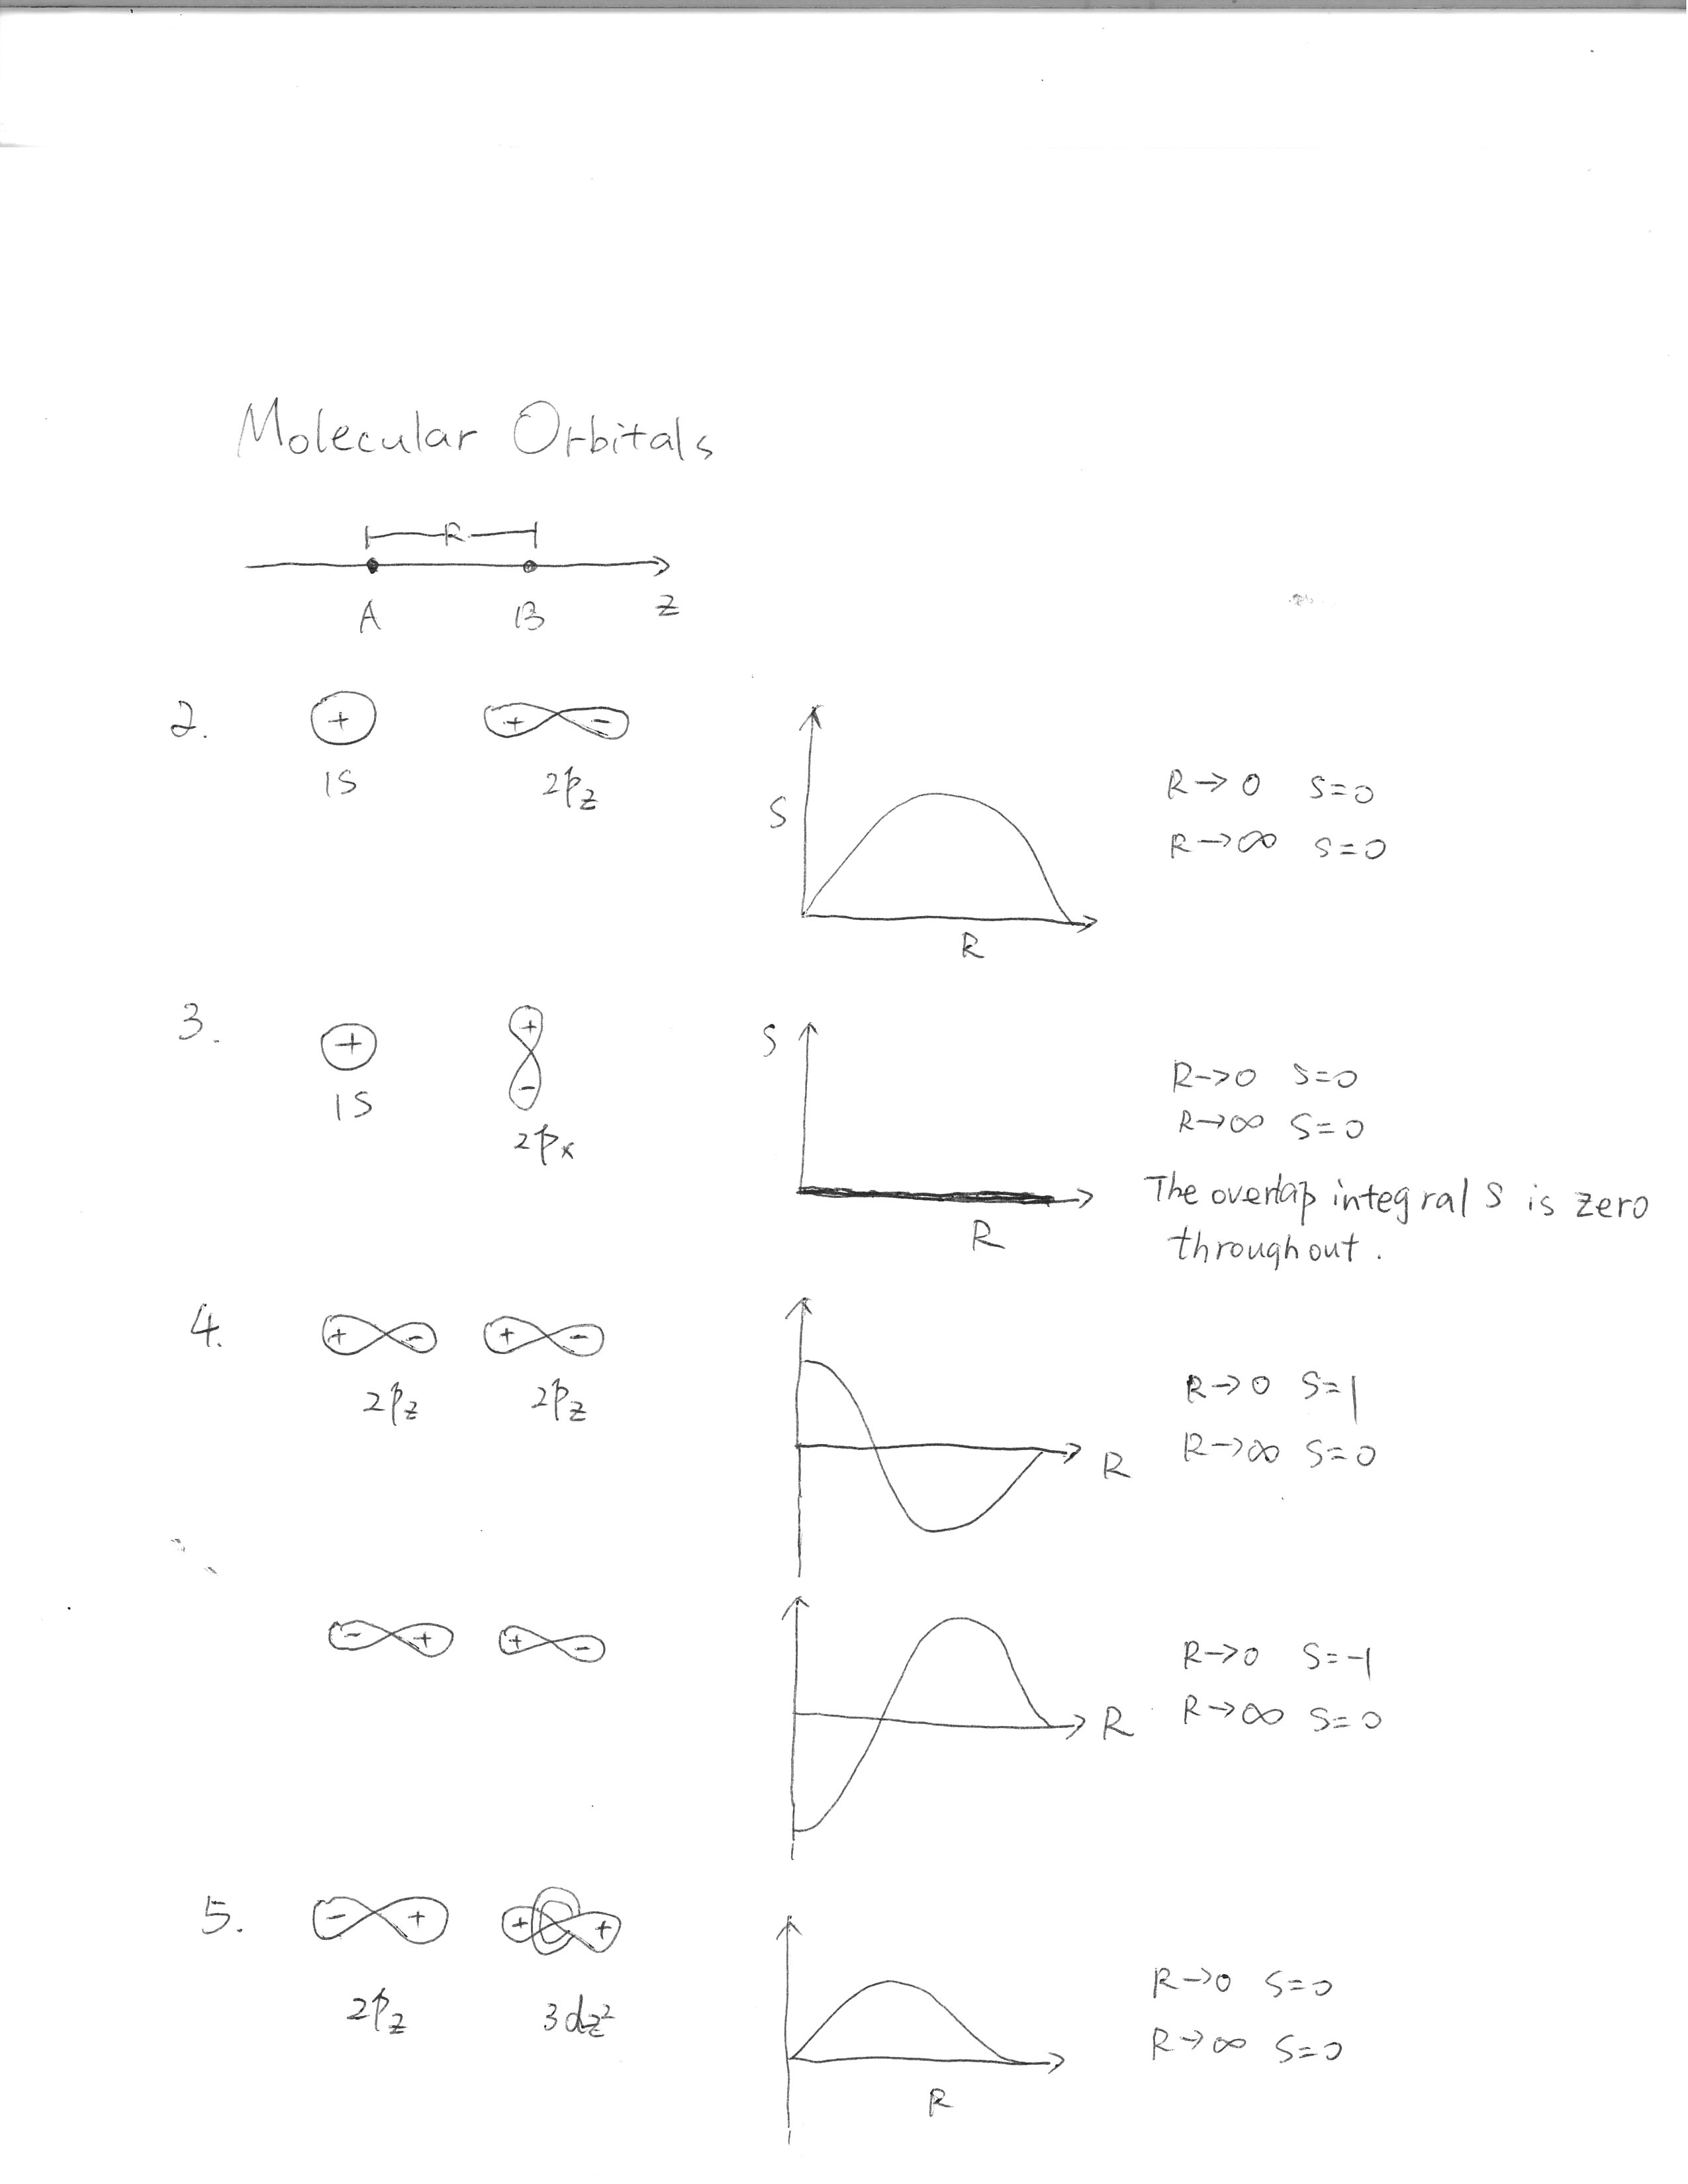 Molecular Orbitals
R
A B z
2. + + -
1S 2pz
S
R
R→0 S=0
R→∞ S=0
3. + + -
1S 2px
S
R
R→0 S=0
R→∞ S=0
The overlap integral S is zero
throughout.
4. + - + -
2pz 2pz
R
R→0 S=1
R→∞ S=0
- + + -
R
R→0 S=-1
R→∞ S=0
5. - + + +
2pz 3dz²
R
R→0 S=0
R→∞ S=0